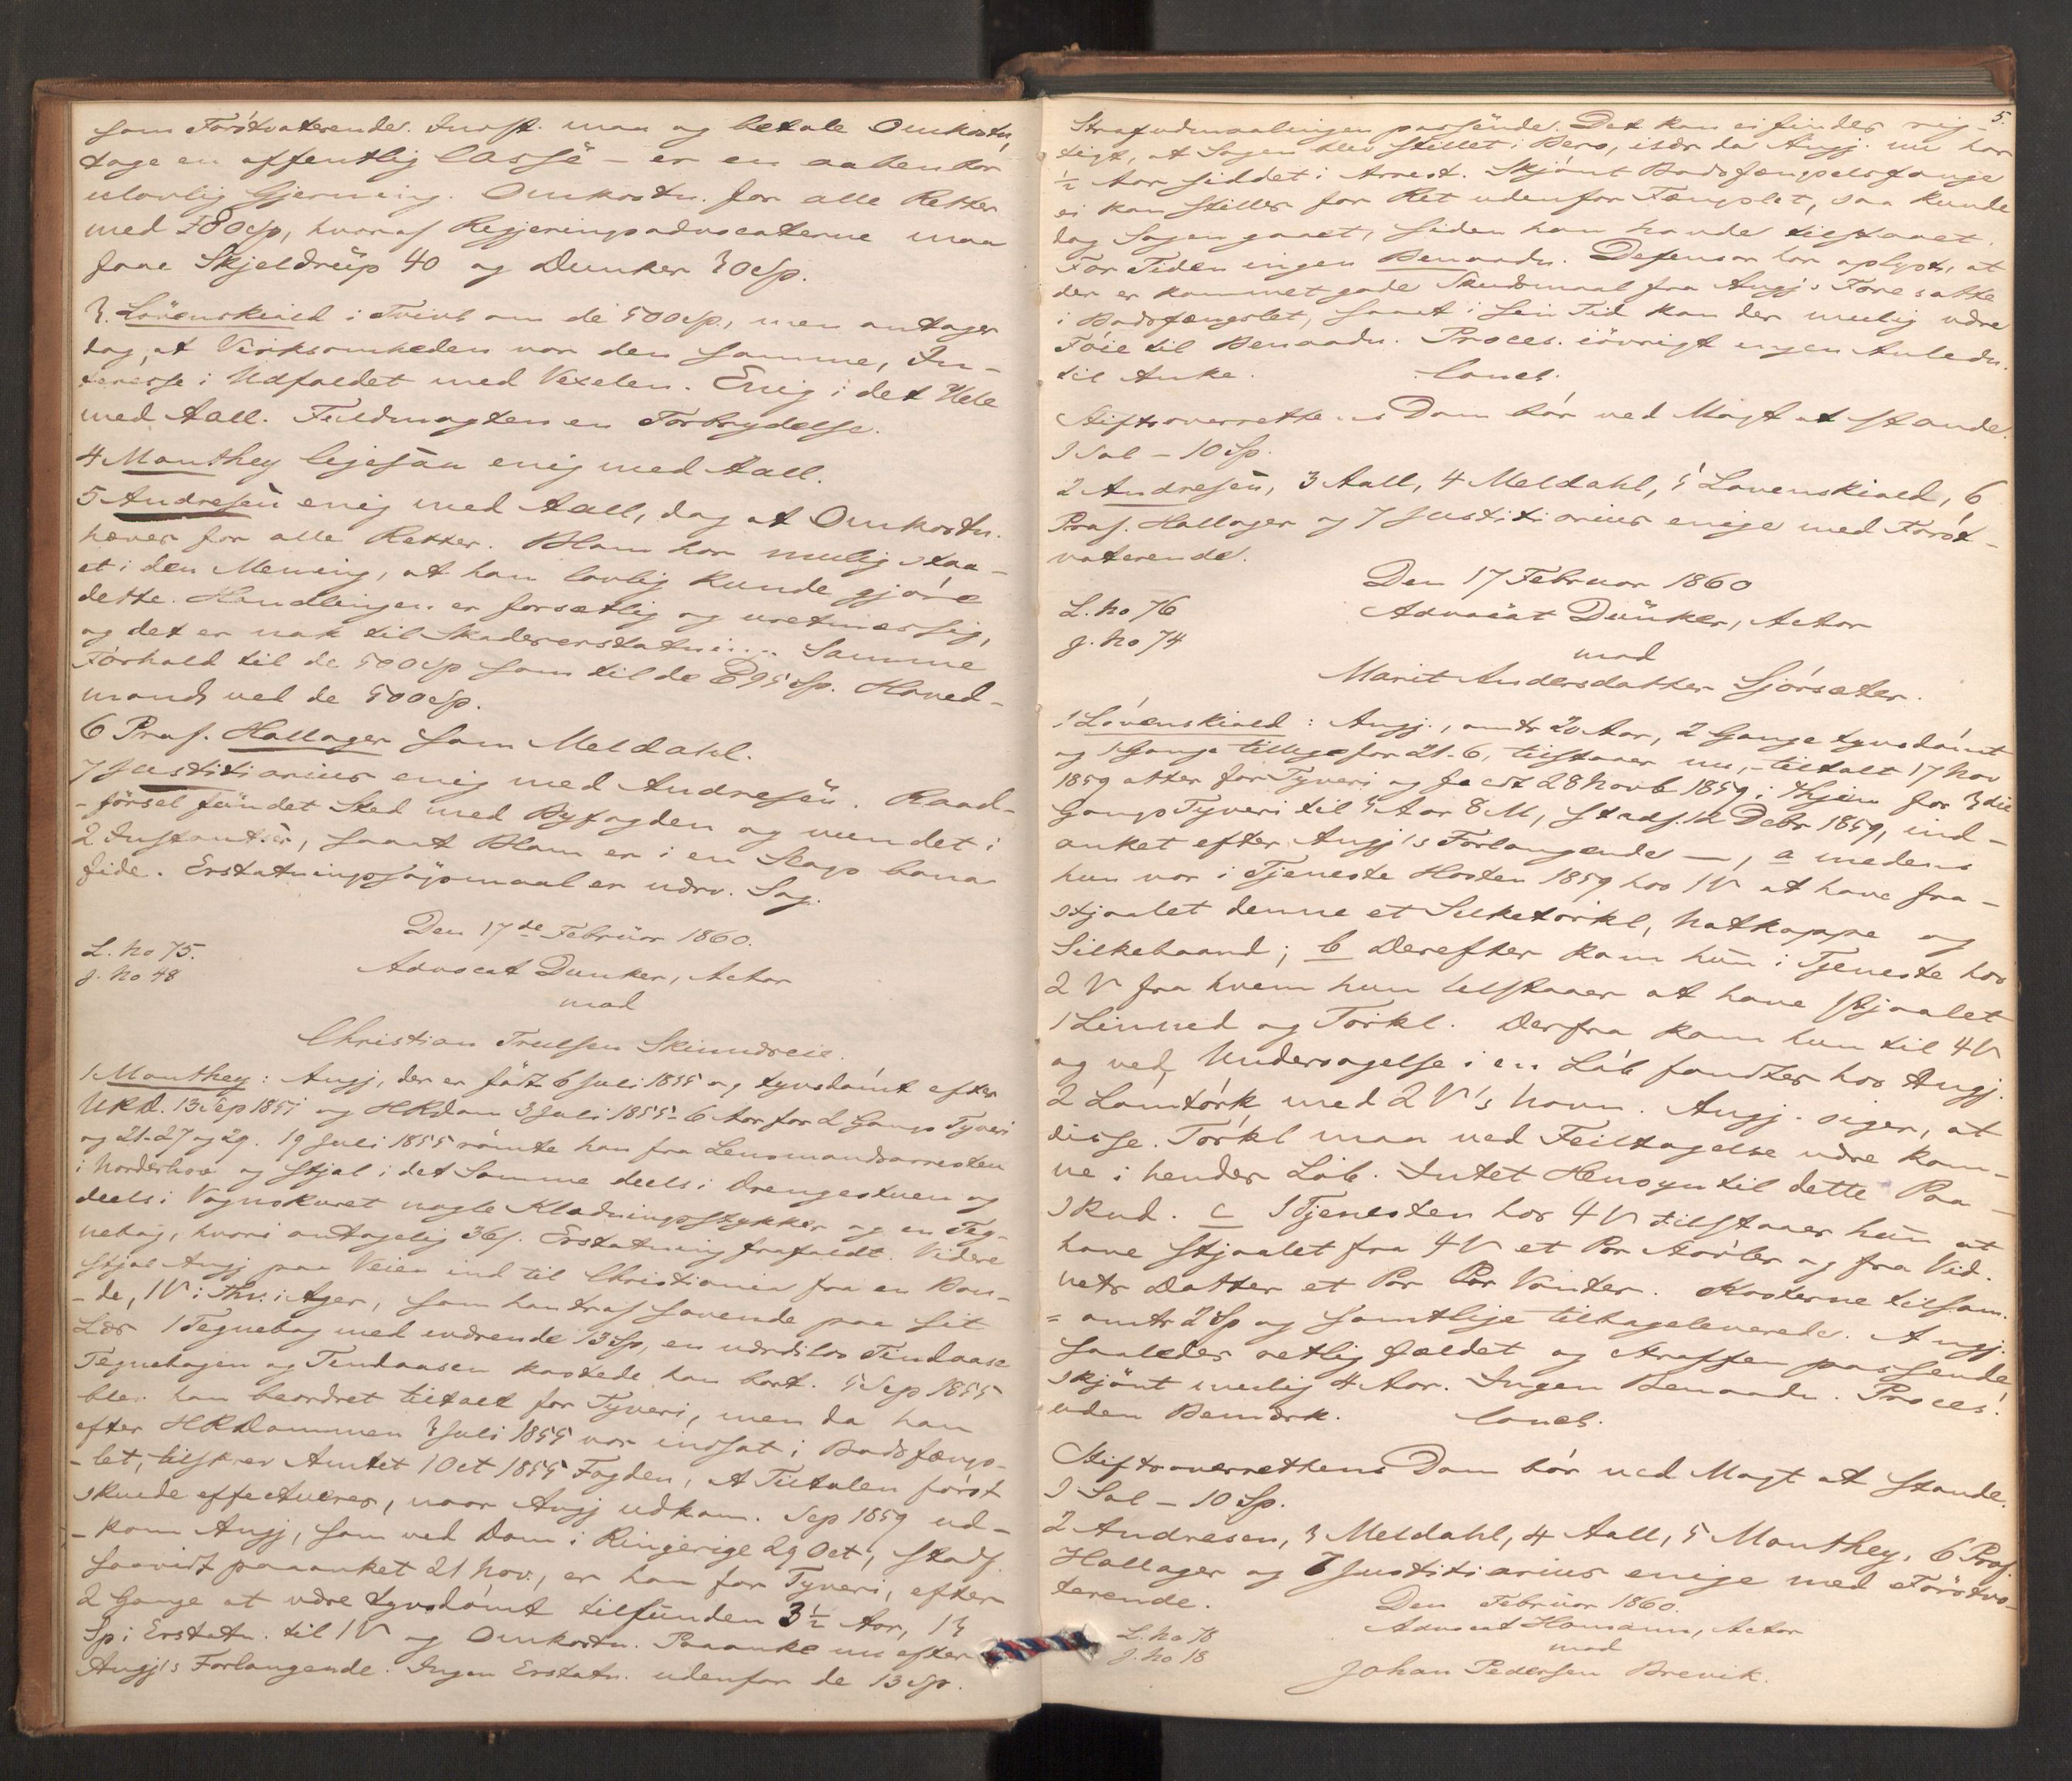 som Förstvoterende. Indst. maa og betale Omkostn,
tage en offentlig Casse - er en aabenbar
ulovlig Gjerning. Omkostn. for alle Retter
med 80 Sp, hvoraf Regjeringsadvocaterne maa
faae Skjeldrup 40 og Dunker 30 Sp.
3. Lövenskiold i Tvivl om de 500 Sp, men antager
dog, at Virksomheden var den samme, In-
teresse i Udfaldet med Vexelen. Enig i det Hele
med Aall. Fuldmagten en Forbrydelse.
4 Manthey ligesaa enig med Aall.
5 Andresen enig med Aall, dog at Omkostn.
hæves for alle Retter. Blom har mulig staa-
et i den Mening, at han lovlig kunde gjöre
dette. Handlingen er forsætlig og uretmæssig,
og det er nok til Skadeserstatning. Samme
Forhold til de 500 Sp som til de 895 Sp. Hoved-
mand ved de 500 Sp.
6 Prof. Hallager som Meldahl.
7 Justitiarius enig med Andresen. Raad-
-försel fundet Sted med Byfogden og vundet i
2 Instantser, saaat Blom er i en Slags bona
fide. Erstatningssögsmaal er udrv. Sag.
Den 17de Februar 1860.
L. No 75.
J. No 48
Advocat Dunker, Actor
mod
Christian Trulsen Skinndveie.
1 Manthey: Angj, der er födt 6 Juli 1835 og tyvsdömt efter
URD. 13 Sep 1851 og HRDom 3 Juli 1855 - 6 Aar for 2 Gangs Tyveri
og 21-27 og 29. 19 Juli 1855 römte han fra Lensmandsarresten
i Norderhov og stjal i det Samme deels i Drengestuen og
deels i Vognskuret nogle Klædningsstykker og en Teg-
nebog, hvori antagelig 36 s. Erstatning frafaldt. Videre
stjal Angj paa Veien ind til Christiania fra en Bon-
-de, 1 V i Thv. i Ager, som han traf sovende paa sit
Læs 1 Tegnebog med værende 13 Sp, en værdilös Tindaase
Tegnebogen og Tindaasen kastede han bort. 5 Sep 1855
blev han beordret tiltalt for Tyveri, men da han
efter HRDommen 3 Juli 1855 var indsat i Bodsfængs-
-let, tilskrev Amtet 1 Oct 1855 Fogden, at Tiltalen först
skulde effectueres, naar Angj udkom. Sep 1859 ud-
-kom Angj, som ved Dom i Ringerige 29 Oct, stadf.
saavidt paaanket 21 Nov., er han for Tyveri, efter
2 Gange at være tyvsdömt tilfunden 3½ Aar, 13
Sp i Erstatn. til 1 V og Omkostn. Paaanke nu efter
Angj's Forlangende. Ingen Erstatn. udenfor de 13 Sp.
5.
Strafudmaalingen passende. Det kan ei findes rig-
tigt, at Sagen blev stillet i Bero, især da Angj. nu har
½ Aar siddet i Arrest. Skjönt Bodsfængselsfange
ei kan stilles for Ret udenfor Fængslet, saa kunde
dog Sagen gaaet, siden han havde tilstaaet.
For Tiden ingen Benaadn. Defensor har oplyst, at
der er kommet gode Skudsmaal fra Angj's Foresatte
i Bodsfængslet, saaat i sin Tid kan der mulig være
Föie til Benaadn. Proces. iövrigt ingen Anledn.
til Anke. Concl.
Stiftsoverrettens Dom bör ved Magt at stande.
I Sal - 10 Sp.
2 Andresen, 3 Aall, 4 Meldahl, 5 Lövenskiold, 6
Prof. Hallager og 7 Justitiarius enige med Först-
voterende.
Den 17 Februar 1860
L. No 76
J. No 74
Advocat Dunker, Actor
mod
Marit Andersdatter Sjörsæter.
1 Lövenskiold: Angj., omtr 20 Aar, 2 Gange tyvsdömt
og 1 Gang tillige for 21-6, tilstaaer nu, - tiltalt 17 Nov
1859 atter for Tyveri og fældt 28 Novb 1859 i Thjem for 3die
Gangs Tyveri til 5 Aar 8 M, stadf. 12 Debr 1859, ind-
anket efter Angj's Forlangende -, a medens
hun var i Tjeneste Hösten 1859 hos 1 V at have fra-
stjaalet denne et Silketörkl, Natkappe og
Silkebaand; b Derefter kom hun i Tjeneste hos
2 V fra hvem hun tilstaaer at have stjaalet
1 Linned og Törkl. Derfra kom hun til 4 V
og ved Undersögelse i en Löb fandtes hos Angj.
2 Lomtörk med 2 V's Navn. Angj. siger, at
disse Törkl maa ved Feiltagelse være kom-
ne i hendes Löb. Intet Hensyn til dette Paa-
skud. c I Tjenesten hos 4 V tilstaaer hun at
have stjaalet fra 4 V et Par Aarler og fra Vid-
nets Datter et Par Par Vanter. Kosterne tilsam.
= omtr 2 Sp og samtlige tilbageleverede. Angj.
saaledes rettelig fældet og Straffen passende,
skjönt mulig 4 Aar. Ingen Benaadn. Proces.
uden Bemærk. Concl.
Stiftsoverrettens Dom bör ved Magt at stande.
I Sal - 10 Sp.
2 Andresen, 3 Meldahl, 4 Aall, 5 Manthey, 6 Prof.
Hallager og 7 Justitiarius enige med Förstvo-
terende.
Den Februar 1860.
L. No 78
J. No 18
Advocat Homann, Actor
mod
Johan Pedersen Brevik.